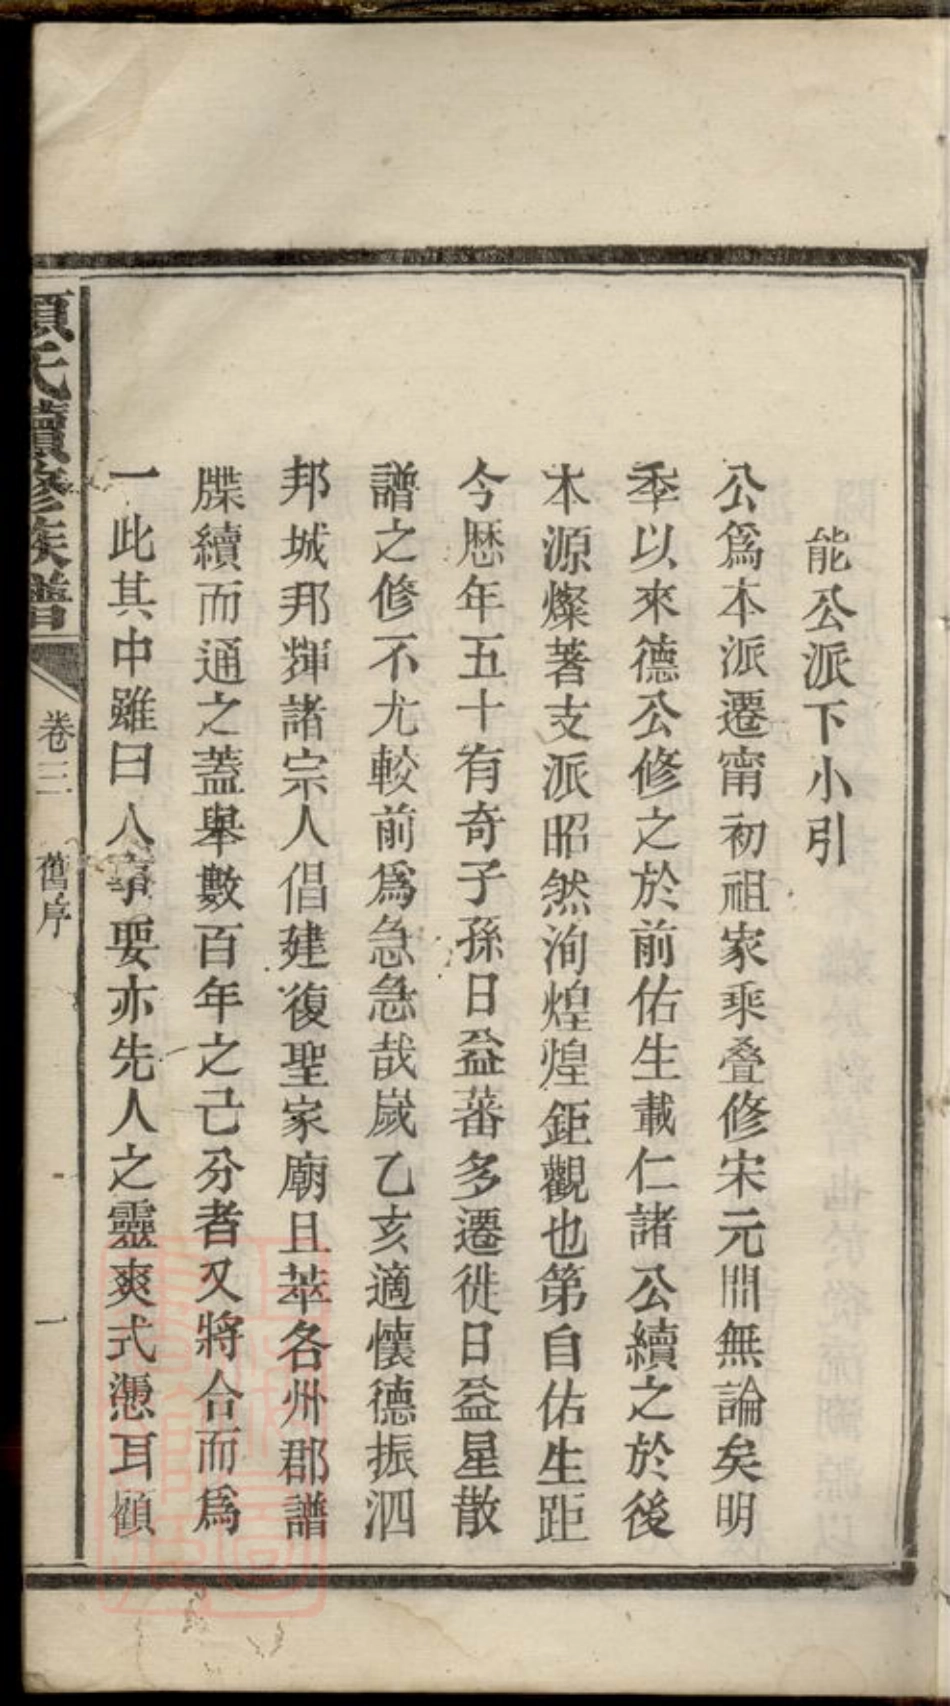 能公派下小引
公爲本派遷甯初祖家乘叠修宋元間無論矣明
季以來德公修之於前佑生載仁諸公續之於後
本源燦著支派昭然洵煌煌鉅觀也第自佑生距
今歴年五十有奇子孫日益蕃多遷徙日益星散
譜之修不尤較前爲急急哉嵗乙亥適懷德振泗
邦城邦輝諸宗人倡建復聖家廟且萃各州郡譜
牒續而通之蓋舉數百年之已分者又將合而爲
一此其中雖曰人事要亦先人之靈爽式憑耳顧
顏氏續修族譜 卷三 舊序 一